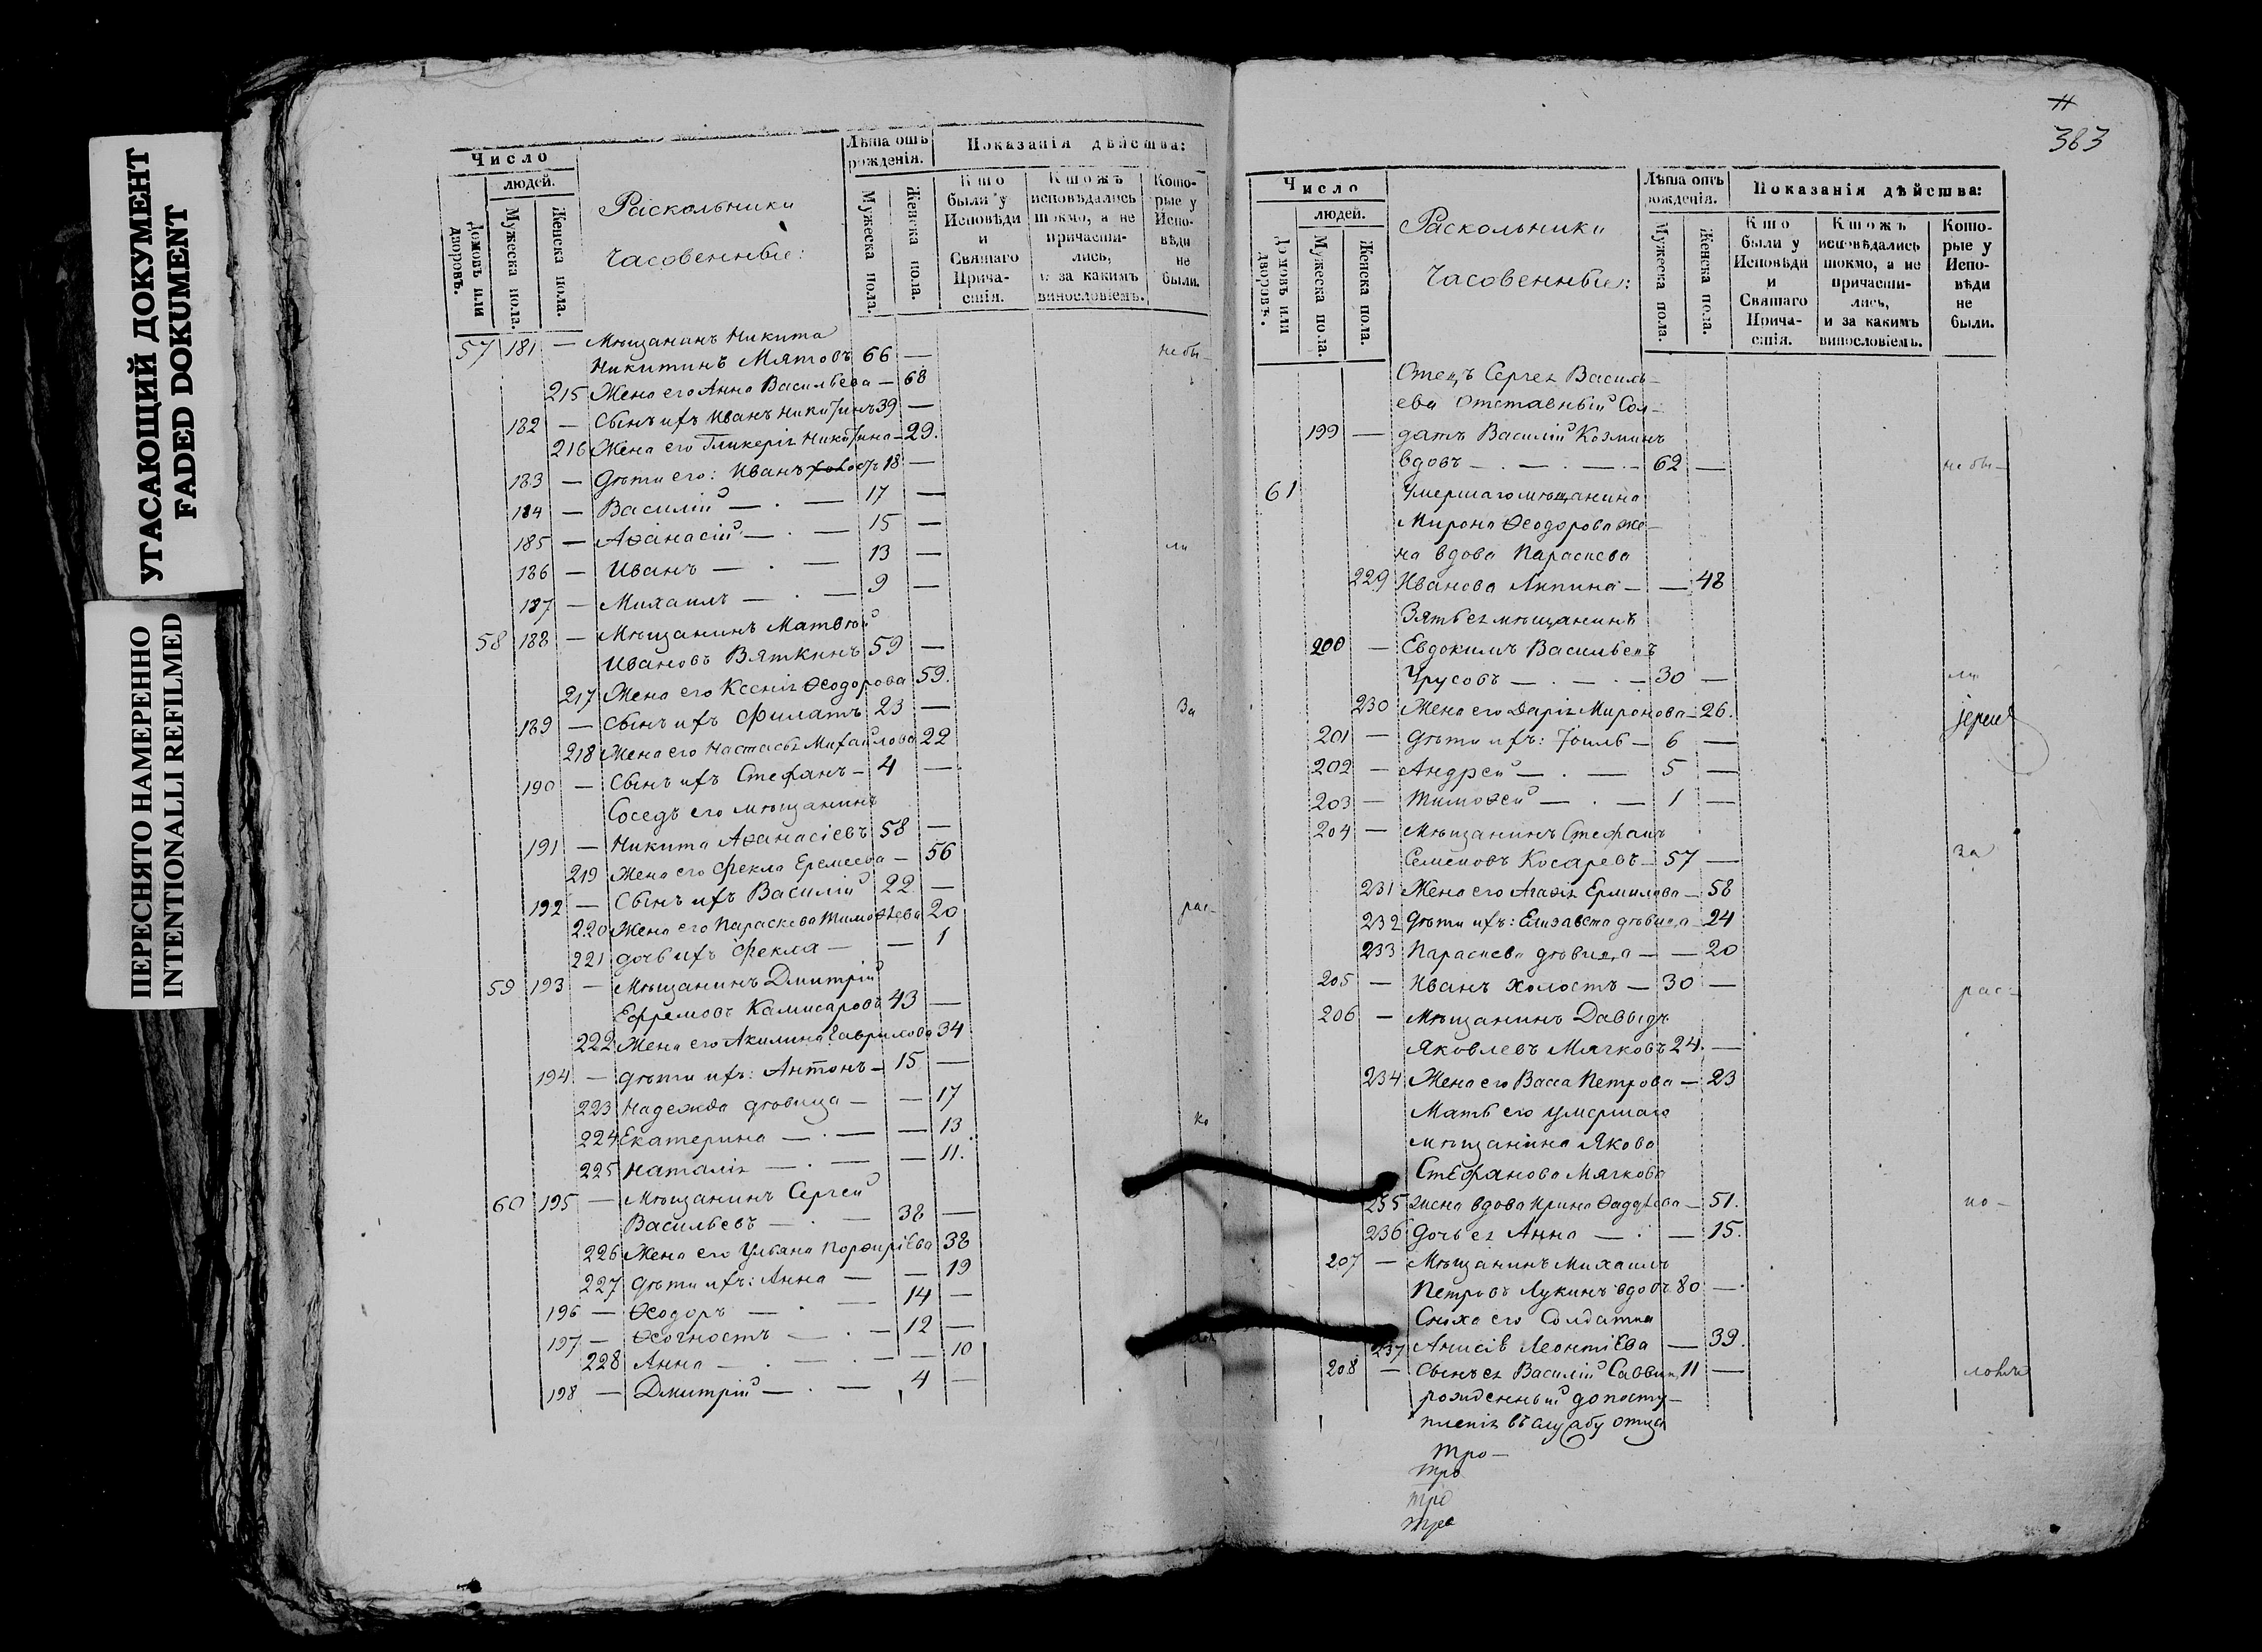 УГАСАЮЩИЙ ДОКУМЕНТ
FADED DOKUMENT
ПЕРЕСНЯТО НАМЕРЕННО
INTENTIONALLI REFILMED
Число
людей.
Домовъ или дворовъ.
Мужеска пола.
Женска пола.
Раскольники
Часовенные:
Лѣта отъ рожденія.
Мужеска пола.
Женска пола.
Показанія дѣйства:
Кто были у Исповѣди и Святаго Прича-стія.
Ктожъ исповѣдались токмо, а не причасти-лись, и за какимъ винословіемъ.
Кото-рые у Испо-вѣди не были.
57 181 — Мѣщанинъ Никита
Никитинъ Мятовъ 66 — не бы-
215 Жена его Анна Васильева — 68
182 — Сынъ ихъ Иванъ Никитинъ 39 —
216 Жена его Гликерія Никитина — 29.
183 — Дѣти его: Иванъ холостъ 18 —
184 — Василій — . — 17 —
185 — Аѳанасій — . — 15 —
186 — Иванъ — . — 13 — ли
187 — Михаилъ — . — 9 —
58 188 — Мѣщанинъ Матвѣй
Ивановъ Вяткинъ 59 —
217 Жена его Ксенія Ѳеодорова 59.
189 — Сынъ ихъ Филатъ 23 — За
218 Жена его Настасья Михайлова 22
190 — Сынъ ихъ Стефанъ — 4 —
Соседъ его мѣщанинъ
191 — Никита Аѳанасіевъ 58 —
219 Жена его Фекла Еремеева — 56
192 — Сынъ ихъ Василій 22 —
220 Жена его Параскева Тимоѳеева 20 рас-
221 дочь ихъ Фекла — — 1
59 193 — Мѣщанинъ Дмитрій
Ефремовъ Камисаровъ 43 —
222 Жена его Акилина Гаврилова 34
194 — дѣти ихъ: Антонъ — 15 —
223 Надежда дѣвица — — 17
224 Екатерина — . — — 13 ко
225 Наталія — . — — 11.
60 195 — Мѣщанинъ Сергей
Васильевъ — . — 38 —
226 Жена его Ульяна Порфиріева 38
227 дѣти ихъ: Анна — — 19
196 — Ѳеодоръ — . — 14 —
197 — Ѳеогностъ — . — 12 —
228 Анна — . — . — — 10
198 — Дмитрій — . — 4 —
383
Число
людей.
Домовъ или дворовъ.
Мужеска пола.
Женска пола.
Раскольники
Часовенные:
Лѣта отъ рожденія.
Мужеска пола.
Женска пола.
Показанія дѣйства:
Кто были у Исповѣди и Святаго Прича-стія.
Ктожъ исповѣдались токмо, а не причасти-лись, и за какимъ винословіемъ.
Кото-рые у Испо-вѣди не были.
Отецъ Сергея Василь-
ева Отставный Сол-
199 — датъ Василій Козминъ
вдовъ — . — . — . — 62 — не бы-
61 Умершаго мѣщанина
Мирона Ѳеодорова же-
на вдова Параскева
229 Иванова Липина — — 48
Зять ея мѣщанинъ
200 — Евдокимъ Васильевъ
Урусовъ — . — . — 30 — ли
230 Жена его Дарія Миронова — 26.
201 — дѣти ихъ: Іоиль — 6 —
202 — Андрей — . — 5 —
203 — Тимоѳей — . — 1 —
204 — Мѣщанинъ Стефанъ
Семеновъ Косаревъ — 57 — За
231 Жена его Агафія Ермилова — 58
232 дѣти ихъ: Елизавета дѣвица — 24
233 Параскева дѣвица — — 20
205 — Иванъ холостъ — 30 — рас-
206 — Мѣщанинъ Давыдъ
Яковлевъ Мягковъ 24. —
234 Жена его Васса Петрова — 23
Мать его умершаго
мѣщанина Якова
Стефанова Мягкова
235 жена вдова Ирина Ѳаддѣева — 51. ко-
236 Дочь ея Анна — : — 15.
207 — Мѣщанинъ Михаилъ
Петровъ Лукинъ вдовъ 80 —
Сноха его Солдатка
237 Анисія Леонтіева — 39.
208 — Сынъ ея Василій Саввинъ 11 —
рожденный до посту-
пленія въ службу отца
Тро-
тро
тро
тро